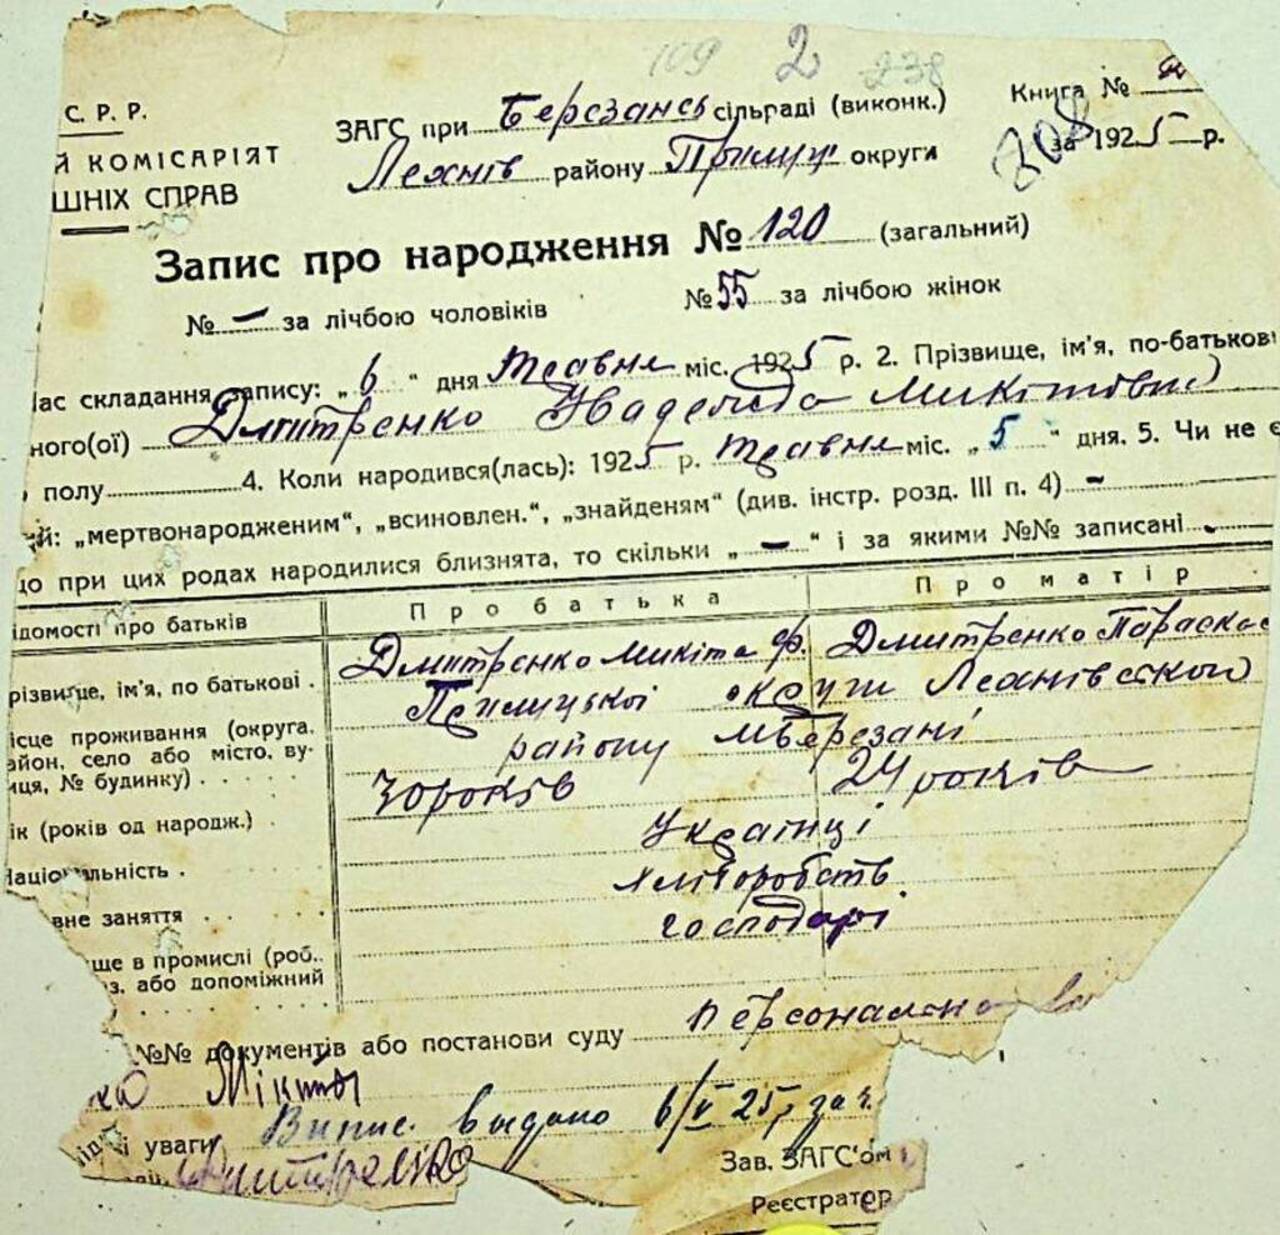 109 2 238
С. Р. Р. ЗАГС при Березансь сільраді (виконк.) Книга №
Й КОМІСАРІЯТ Леяхнів району Прилуц округи 308 за 1925 р.
ШНІХ СПРАВ
Запис про народження № 120 (загальний)
№ — за лічбою чоловіків № 55 за лічбою жінок
Час складання запису: „6“ дня травня міс. 1925 р. 2. Прізвище, ім'я, по-батькові
ного(ої) Дмитренко Надежда Микитовна
полу 4. Коли народився(лась): 1925 р. травня міс. „5“ дня. 5. Чи не є
й: „мертвонародженим“, „всиновлен.“, „знайденям“ (див. інстр. розд. III п. 4) –
що при цих родах народилися близнята, то скільки „—“ і за якими №№ записані -
ідомості про батьків Про батька Про матір
різвище, ім'я, по батькові . Дмитренко Микіта Ф. Дмитренко Параска
ісце проживання (округа, Прилуцької округи Леанівського
айон, село або місто, ву- району мБерезані
иця, № будинку) .
ік (років од народж.) . 30 років 24 років
Національність . Українці
вне заняття . . Хліборобств
ще в промислі (роб.. господарі
з. або допоміжний
№№ документів або постанови суду Персональна
ко Мікіты
і уваги Випис. выдано 6/V 25, за ч.
Дмитренко Зав. ЗАГС'ом
Реєстратор